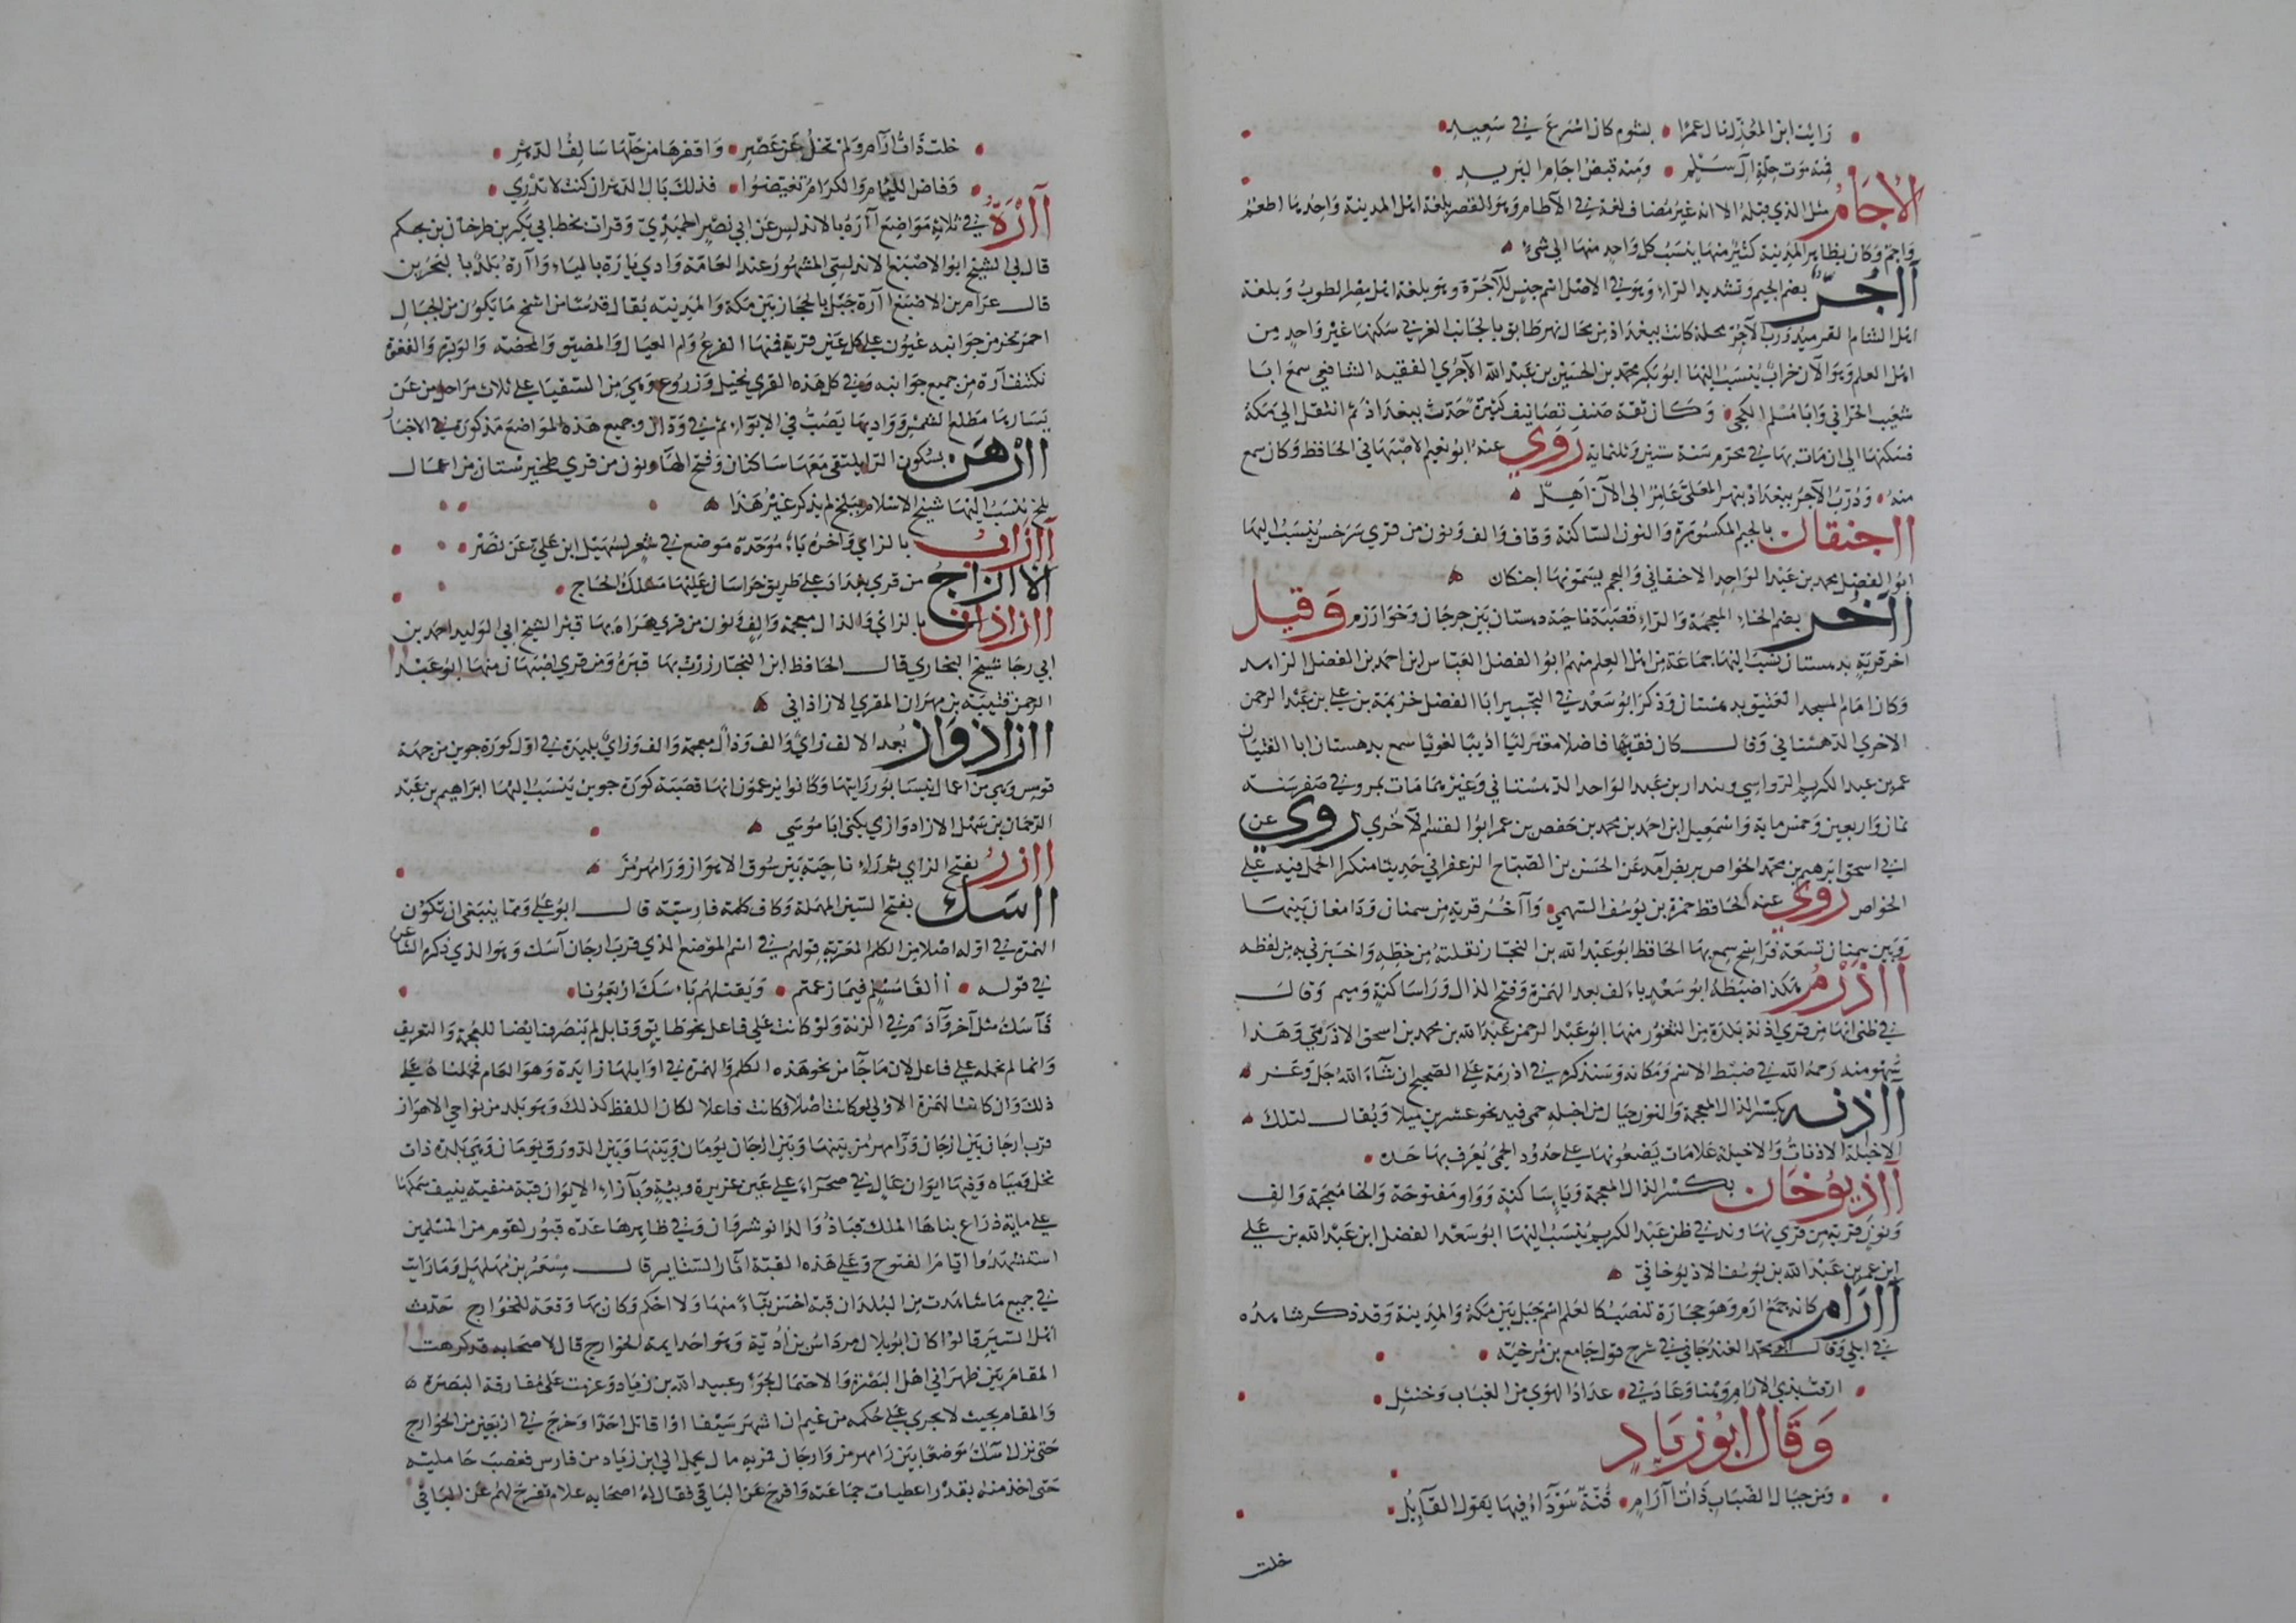 رايت ابن المعذل نال عمرا بشوم كان اسرع في سعيد
فمنه موت جلة ال سلم ومنه قبض اجام البريد
الاجام مثل الذي قبله الا انه غير مضاف لغة في الآطام وهو القصر بلغة اهل المدينة واحدها اطم
واجم وكان بظاهر المدينة كثير منها ينسب كل واحد منها الى شي
آجر بضم الجيم وتشديد الراء وهو في الاصل اسم جنس للآجرة وهو بلغة اهل مصر الطوب وبلغة
اهل الشام القرميد ودرب الآجر محلة كانت ببغداد من محال نهر طابق بالجانب الغربي سكنها غير واحد من
اهل العلم وهو الآن خراب ينسب اليها ابو بكر محمد بن الحسين بن عبد الله الآجري الفقيه الشافعي سمع ابا
شعيب الحراني وابا مسلم الكجي وكان ثقة صنف تصانيف كثيرة حدث ببغداد ثم انتقل الى مكة
فسكنها الى ان مات بها في محرم سنة ستين وثلثماية روي عنه ابو نعيم الاصبهاني الحافظ وكان سمع
منه ودرب الآجر ببغداد بنهر المعلى عامر الى الآن آهل
آجنقان بالجيم المكسورة والنون الساكنة وقاف والف ونون من قري سرخس ينسب اليها
ابو الفضل محمد بن عبد الواحد الاجنقاني والعجم يسمونها اجنكان
آخر بضم الخاء المعجمة والراء قصبة ناحية دهستان بين جرجان وخوارزم وقيل
اخر قرية بدهستان نسب اليها جماعة من اهل العلم منهم ابو الفضل العباس ابن احمد بن الفضل الزاهد
وكان امام المسجد العتيق بدهستان وذكر ابو سعد في التحبير ابا الفضل خزيمة بن علي بن عبد الرحمن
الاخري الدهستاني وقال كان فقيها فاضلا معتزليا اديبا لغويا سمع بدهستان ابا الفتيان
عمر بن عبد الكريم الرواسي وبندار بن عبد الواحد الدهستاني وغيرهما مات بمرو في صفر سنة
ثمان واربعين وخمس ماية واسمعيل ابن احمد بن محمد بن حفص بن عمر ابو القسم الآخري روي عن
ابي اسحق ابرهيم بن محمد الخواص عن الحسن بن الصباح الزعفراني حديثا منكرا الحمل فيه على
الخواص روي عنه الحافظ حمزة بن يوسف السهمي وآخر قرية من سمنان ودامغان بينها
وبين سمنان تسعة فراسخ سمع بها الحافظ ابو عبد الله بن النجار نقلته من خطه واخبرني به من لفظه
آذرم هكذا ضبطه ابو سعد بالف بعد الهمزة وفتح الذال وراء ساكنة وميم وقال
في ظني انها من قري اذنة بلدة من الثغور منها ابو عبد الرحمن عبد الله بن محمد بن اسحق الاذرمي وهذا
سهو منه رحمه الله في ضبط الاسم ومكانه وسنذكره في اذرمة على الصحيح ان شاء الله جل وعز
آذنه بكسر الذال المعجمة والنون خيال من اخيلة حمى فيد نحو عشرين ميلا ويقال لتلك
الاخيلة الاذنات والاخيلة علامات يضعونها على حدود الحمى يعرف بها حده
آذيوخان بكسر الذال المعجمة وياء ساكنة وواو مفتوحة والخا معجمة والف
ونون قرية من قري نهاوند في ظن عبد الكريم ينسب اليها ابو سعد الفضل ابن عبد الله بن علي
ابن عمر بن عبد الله بن يوسف الاذيوخاني
آرام كانه جمع ارم وهو حجارة تنصب كالعلم اسم جبل بين مكة والمدينة وقد ذكر شاهده
في ابلى وقال ابو محمد الغندجاني في شرح قول جامع بن مرخية
ارقت بذي الارام وهنا وعادني عداد الهوي من العناب وخنثل
وقال ابو زياد
ومن جبال الضباب ذات آرام قنة سوداء فيها يقول القائل
خلت
خلت ذات آرام ولم تخل عن عصر واقفرها من حلها سالف الدهر
وفاض اللئام والكرام تغيضوا فذلك بال الدهر ان كنت لا تدري
آرة في ثلاثة مواضع آرة بالاندلس عن ابي نصر الحميدي وقرات بخط ابي بكر بن طرخان بن بحكم
قال لي الشيخ ابو الاصبغ الاندلسي المشهور عند العامة وادي يارة بالياء وآرة بلد بالبحرين
قال عرام بن الاصبغ آرة جبل بالحجاز بين مكة والمدينة يقابل قدسا من اشمخ ما يكون من الجبال
احمر تخر من جوانبه عيون على كل عين قرية فمنها الفرع وام العيال والمضيق والمحضة والوبرة والفغوة
تكتنف آرة من جميع جوانبه وفي كل هذه القري نخيل وزروع وهي من السقيا على ثلاث مراحل من عن
يسارها مطلع الشمس وواديها يصب في الابواء ثم في ودان وجميع هذه المواضع مذكورة في الاخبار
آرهن بسكون الراء يلتقي معها ساكنان وفتح الهاء ونون من قري طخيرستان من اعمال
بلخ ينسب اليها شيخ الاسلام ببلخ لم يذكر غير هذا
آزاب بالزاي وآخره باء موحدة موضع في شعر لسهيل ابن علي عن نصر
الآزاج من قري بغداد على طريق خراسان عليها مسلك الحاج
آزاذان بالزاي والذال معجمة والف ونون من قري هراه بها قبر الشيخ ابي الوليد احمد بن
ابي رجا شيخ البخاري قال الحافظ ابن النجار زرت بها قبره ومن قري اصبهان منها ابو عبد
الرحمن قتيبة بن مهران المقري الازاذاني
آزاذوار بعد الالف زاي والف وذال معجمة والف وزاي بليدة في اول كورة جوين من جهة
قومس وهي من اعمال نيسابور رايتها وكانوا يزعمون انها قصبة كورة جوين ينسب اليها ابراهيم بن عبد
الرحمان بن سهل الازادوازي يكنى ابا موسي
آزر بفتح الزاي ثم راء ناحية بين سوق الاهواز ورامهرمز
آسك بفتح السين المهملة وكاف كلمة فارسية قال ابو علي ومما ينبغي ان تكون
الهمزة في اوله اصلا من الكلم المعربة قولهم في اسم الموضع الذي قرب ارجان آسك وهو الذي ذكره الشاعر
في قوله أألفا مسلم فيما زعمتم ويقتلهم باسك اربعونا
فآسك مثل آخر وآدم في الزنة ولو كانت على فاعل نحو طابق وتابل لم ينصرف ايضا للعجمة والتعريف
وانما لم نحمله على فاعل لان ما جا من نحو هذه الكلم والهمزة في اوايلها زايدة وهو العام فحملناه على
ذلك وان كانت الهمزة الاولي لو كانت اصلا وكانت فاعلا لكان اللفظ كذلك وهو بلد من نواحي الاهواز
قرب ارجان بين ارجان ورامهرمز بينها وبين ارجان يومان وبينها وبين الدورق يومان وهي بلدة ذات
نخل ومياه وفيها ايوان عال في صحراء على عين غزيرة وبيئة وبازاء الايوان قبة منفية ينيف سمكها
على ماية ذراع بناها الملك قباذ والد انوشروان وفي ظاهرها عدة قبور لقوم من المسلمين
استشهدوا ايام الفتوح وعلى هذه القبة آثار الستاير قال مسعر بن مهلهل وما رايت
في جميع ما شاهدت من البلدان قبة احسن بناء منها ولا احكم وكان بها وقعة للخوارج حدث
اهل السير قالوا كان ابو بلال مرداس بن ادية وهو احد ايمة الخوارج قال لاصحابه قد كرهت
المقام بين ظهراني اهل البصرة والاحتمال لجور عبيد الله بن زياد وعزمت على مفارقة البصرة
والمقام بحيث لا يجري على حكمه من غير ان اشهر سيفا او اقاتل احدا وخرج في اربعين من الخوارج
حتى نزل آسك موضعا بين رامهرمز وارجان فمر به مال يحمل الى ابن زياد من فارس فغصب حامليه
حتى اخذ منه بقدر اعطيات جماعته وافرج عن الباقي فقال له اصحابه علام تفرج لهم عن الباقي